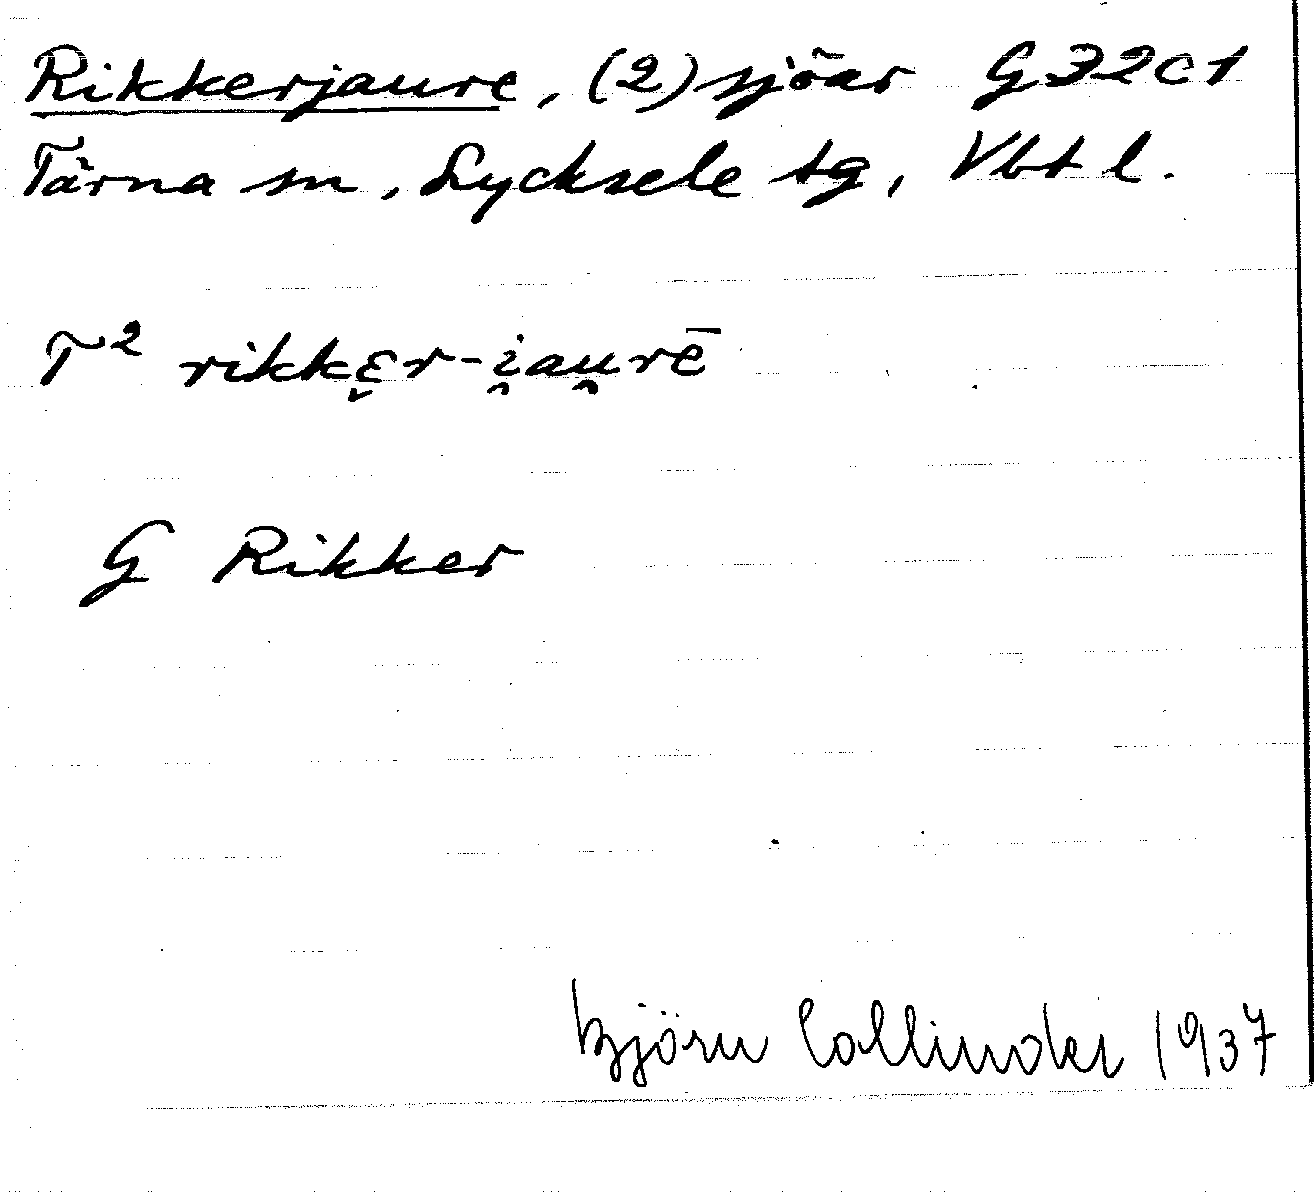 Rikkerjaure, (2) sjöar G32c1
Tärna sn, Lycksele tg, Vbt l.
T² rikkɛ̬r-i̯au̯rē
G Rikker
Björn Collinder 1937